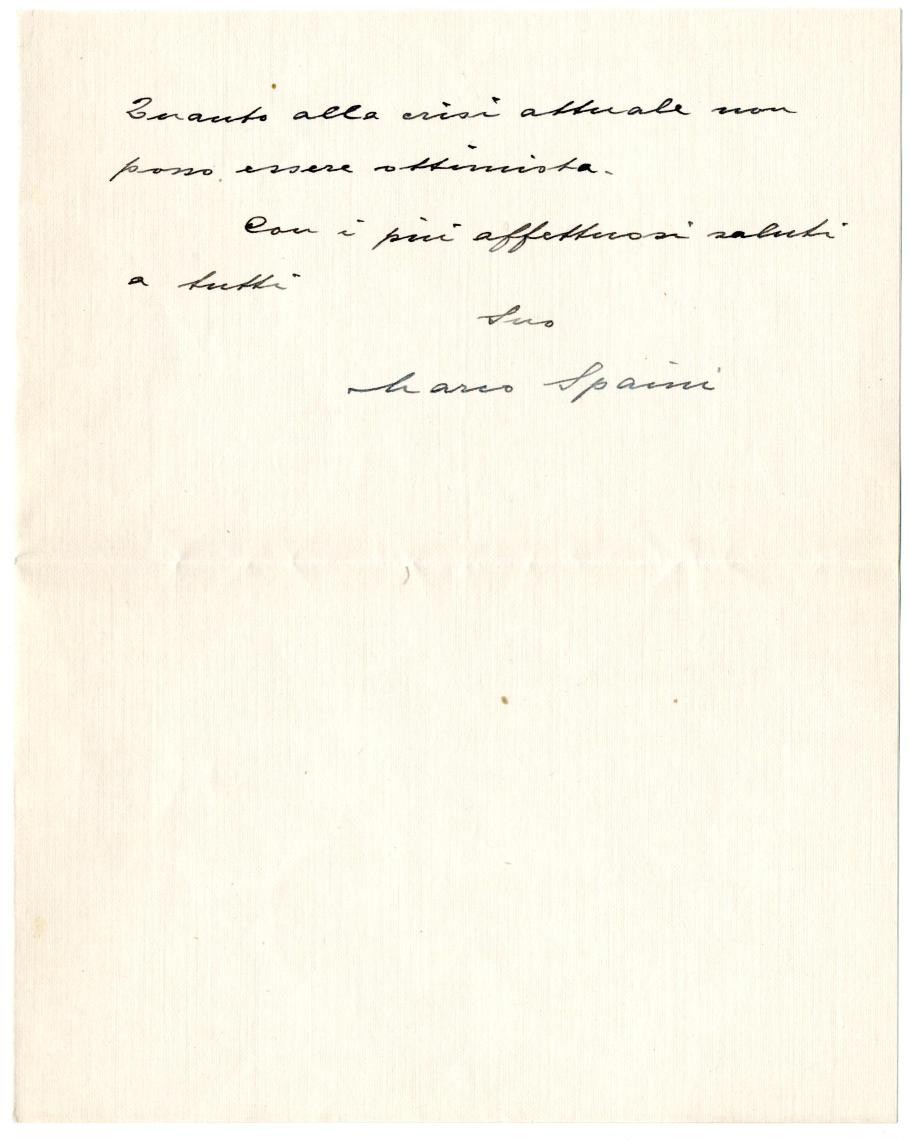 Quanto alla crisi attuale non
posso essere ottimista.
Con i più affettuosi saluti
a tutti
Suo
Marco Spaini